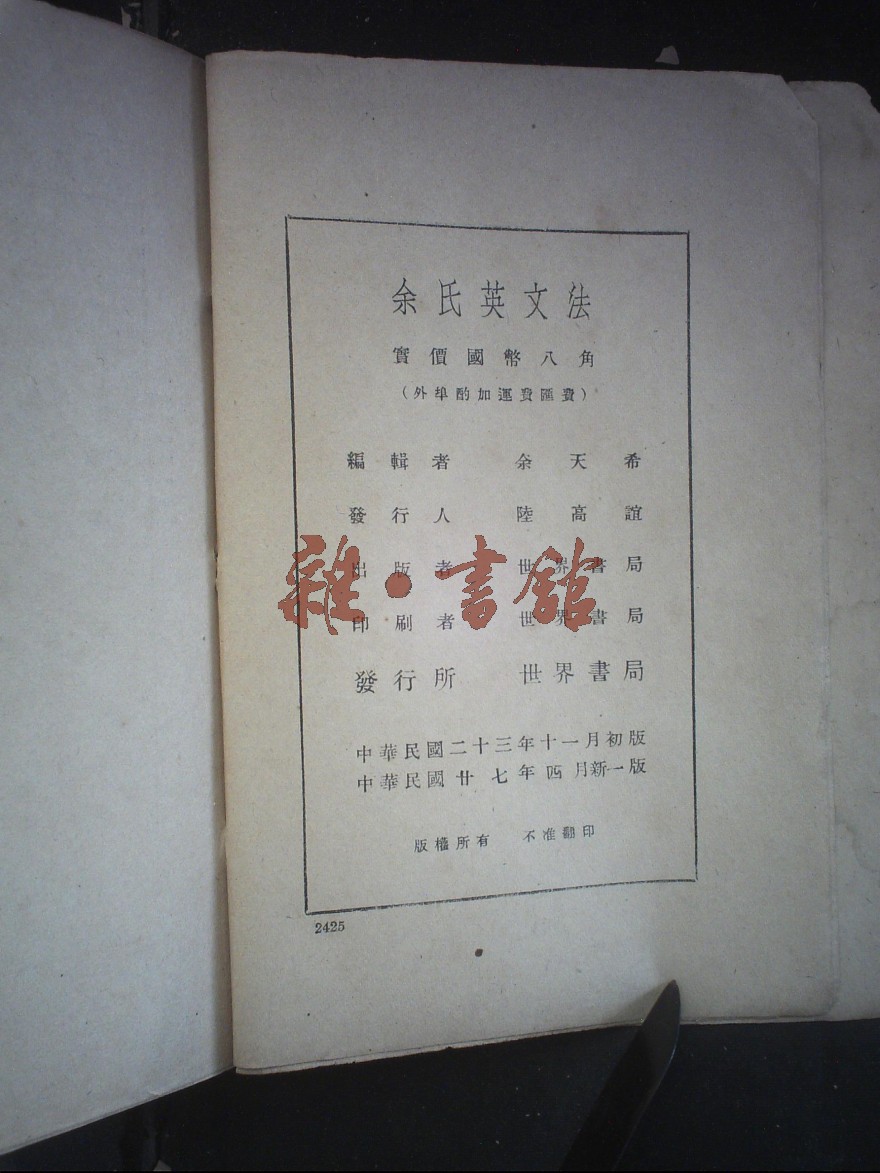 余氏英文法
實價國幣八角
（外埠酌加運費匯費）
編輯者 余天希
發行人 陸高誼
出版者 世界書局
印刷者 世界書局
發行所 世界書局
中華民國二十三年十一月初版
中華民國廿七年四月新一版
版權所有 不准翻印
2425
雜·書館